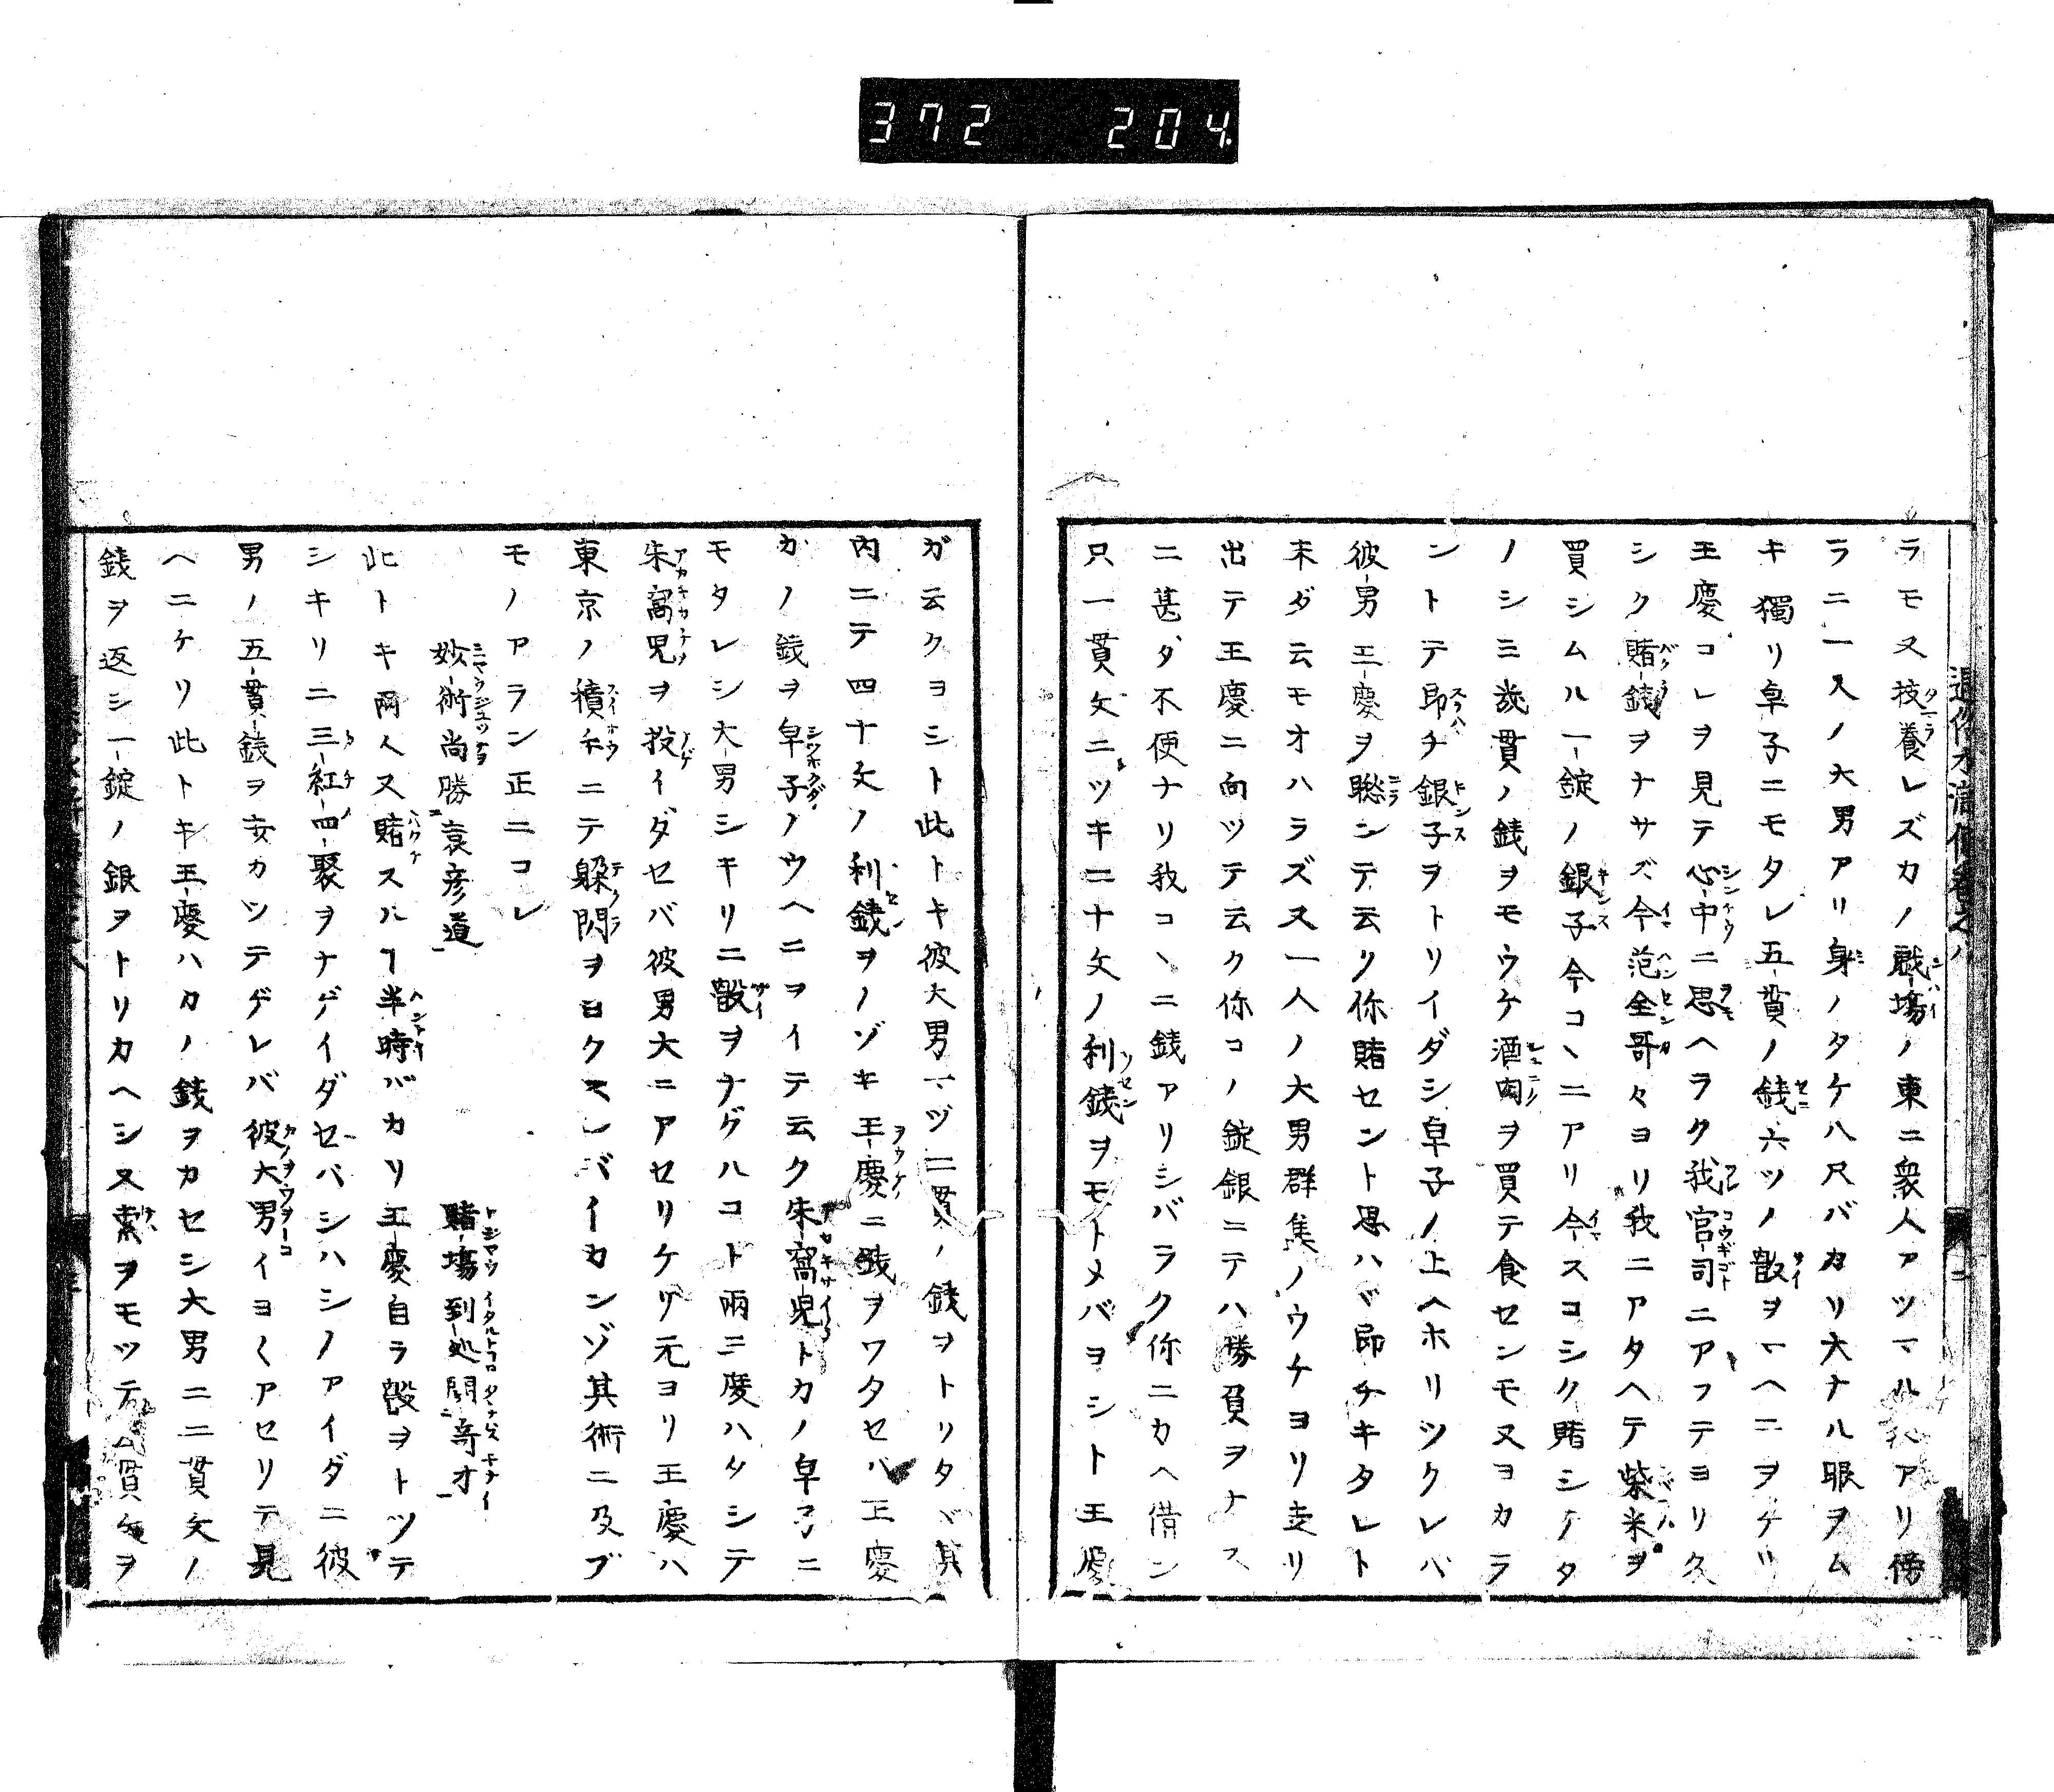 372 204
ラモ又技養レズカノ戯塲ノ東ニ衆人アツマルハアリ傍
ラニ一人ノ大男アリ身ノタケ八尺バカリ大ナル眼ヲム
キ獨リ卓子ニモタレ五貫ノ銭六ツノ骰ヲマヘニヲケリ
王慶コレヲ見テ心中ニ思ヘラク我宮司ニアフテヨリ久
シク賭銭ヲナサズ今范全哥々ヨリ我ニアタヘテ柴米ヲ
買シムル一錠ノ銀子今コヽニアリ今スコシク賭シテタ
ノシミ幾貫ノ銭ヲモウケ酒肉ヲ買テ食センモ又ヨカラ
ントテ即チ銀子ヲトリイダシ卓子ノ上ヘホリツクレバ
彼男王慶ヲ睃ンテ云ク你賭セント思ハヾ即チキタレト
未ダ云モオハラズ又一人ノ大男群集ノウチヨリ走リ
出テ王慶ニ向ツテ云ク你コノ錠銀ニテハ勝負ヲナス
ニ甚タ不便ナリ我コヽニ銭アリシバラク你ニカヘ借ン
只一貫文ニツキ二十文ノ利銭ヲモトメバヨシト王慶
ガ云クヨシト此トキ彼大男マヅ二貫ノ銭ヲトリタヾ其
内ニテ四十文ノ利銭ヲノゾキ王慶ニ銭ヲワタセバ王慶
カノ銭ヲ卓子ノウヘニヲイテ云ク朱窩児トカノ卓子ニ
モタレシ大男シキリニ骰ヲナグルコト両三度ハタシテ
朱窩児ヲ投イダセバ彼男大ニアセリケリ元ヨリ王慶ハ
東京ノ積年ニテ躱閃ヲヨクスレバイカンゾ其術ニ及ブ
モノアラン正ニコレ
妙術尚勝袁彦道 賭塲到処聞奇才
此トキ両人又賭スルヿ半時バカリ王慶自ラ骰ヲトツテ
シキリニ三紅四聚ヲナゲイダセバシハシノアイダニ彼
男ノ五貫銭ヲ友カツテゲレバ彼大男イヨ〱アセリテ見
ヘニケリ此トキ王慶ハカノ銭ヲカセシ大男ニ二貫文ノ
銭ヲ返シ一錠ノ銀ヲトリカヘシ又索ヲモツテ